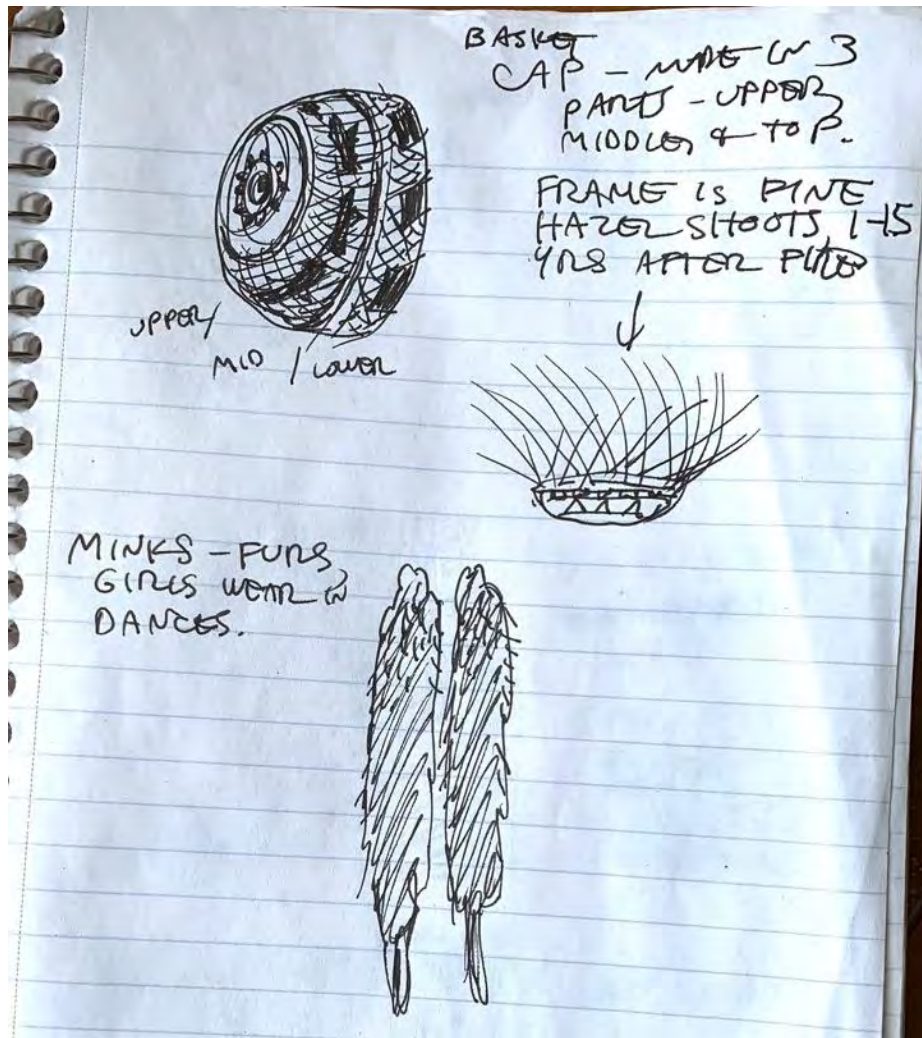 BASKET
CAP - MADE IN 3
PARTS - UPPER,
MIDDLE, & TOP.
FRAME IS FINE
HAZEL SHOOTS, 1-1.5
YRS AFTER FIRE
UPPER/
MID / LOWER
MINKS - FURS
GIRLS WEAR IN
DANCES.